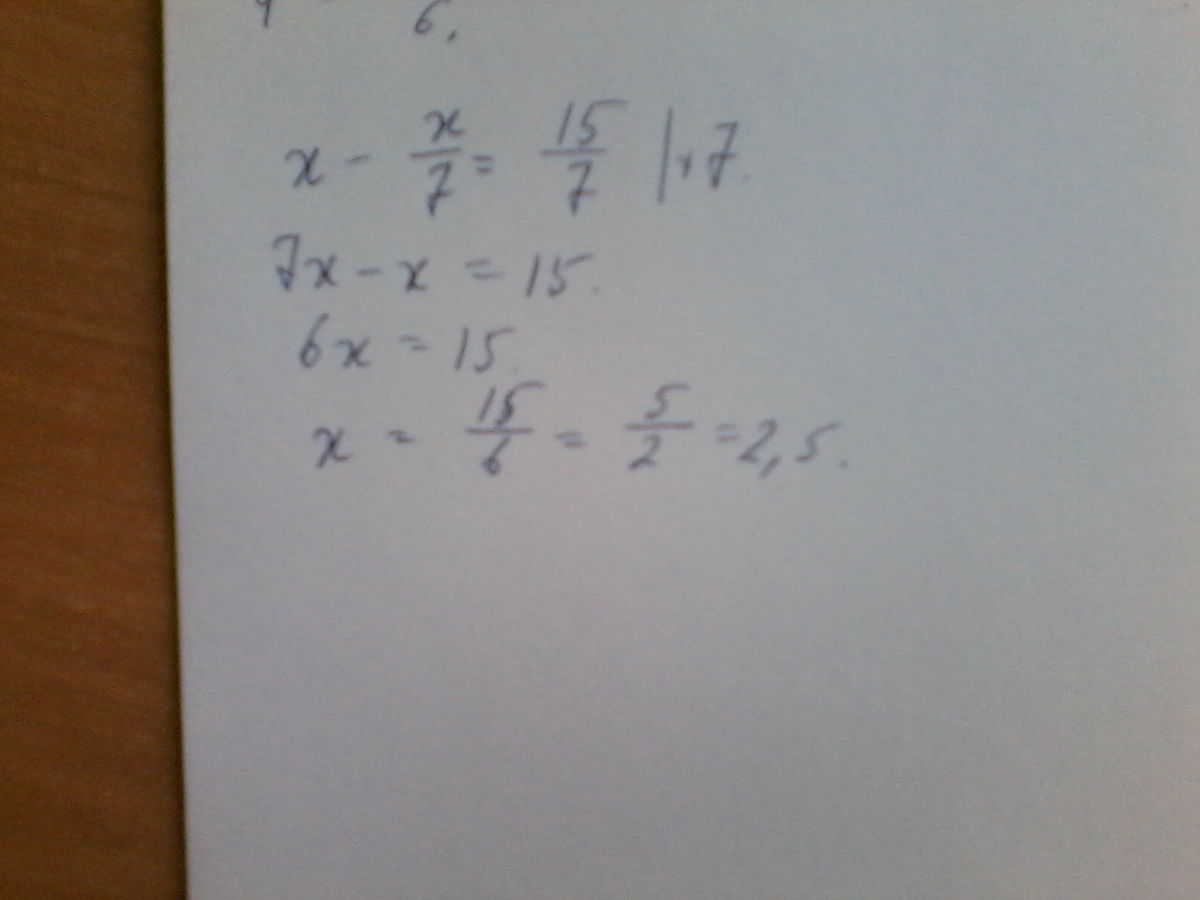 6.
x - x/7 = 15/7 | · 7.
7x - x = 15.
6x = 15.
x = 15/6 = 5/2 = 2,5.